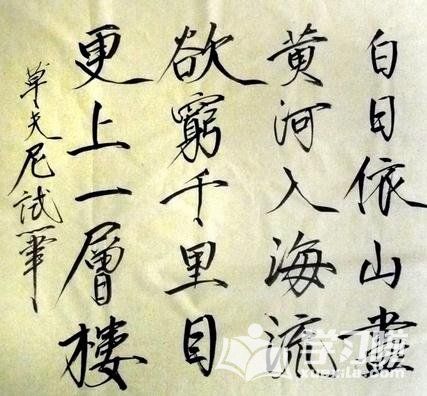 白日依山盡
黄河入海流
欲窮千里目
更上一層樓
草夫尼試筆
学习啦
xuexila.com